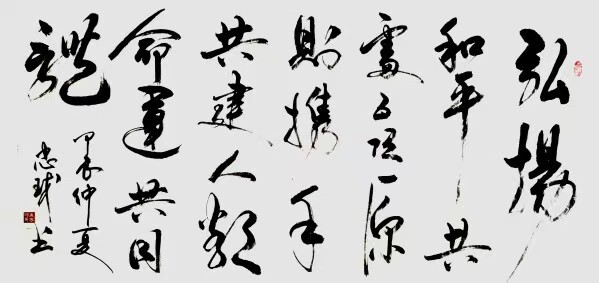 弘揚
和平共
處五項原
則携手
共建人類
命運共同
體
甲辰仲夏
忠書